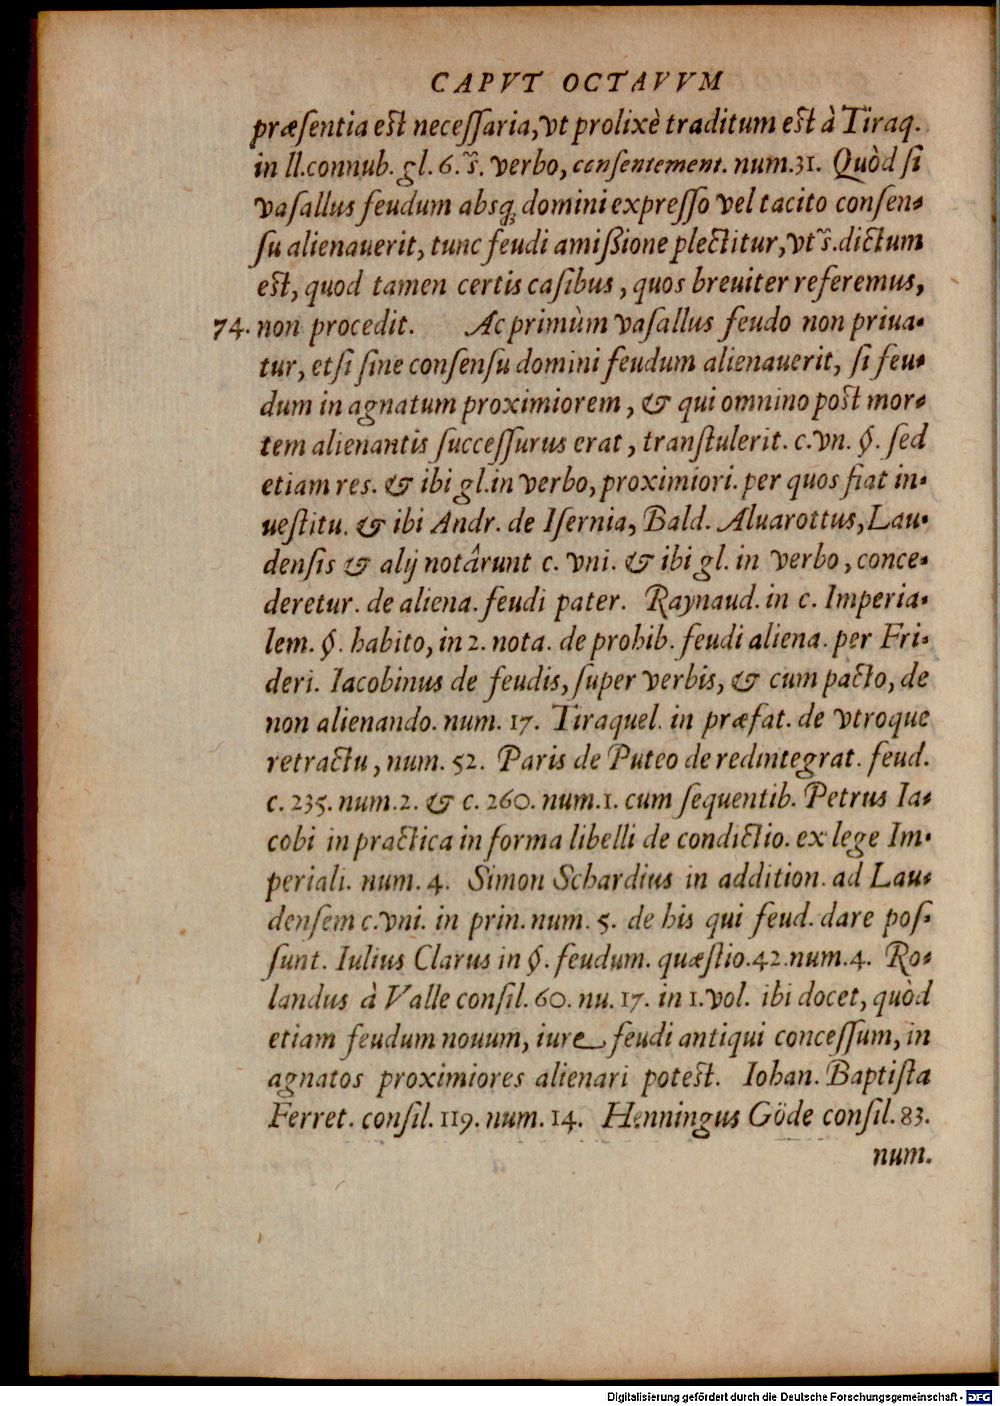 CAPVT OCTAVVM
præsentia est necessaria, vt prolixè traditum est à Tiraq.
in ll. connub. gl. 6. s̃. verbo, consentement. num. 31. Quòd si
vasallus feudum absq; domini expresso vel tacito consen-
su alienauerit, tunc feudi amißione plectitur, vt s̃. dictum
est, quod tamen certis casibus, quos breuiter referemus,
74. non procedit. Ac primùm vasallus feudo non priua-
tur, etsi sine consensu domini feudum alienauerit, si feu-
dum in agnatum proximiorem, & qui omnino post mor-
tem alienantis successurus erat, transtulerit. c. vn. §. sed
etiam res. & ibi gl. in verbo, proximiori. per quos fiat in-
uestitu. & ibi Andr. de Isernia, Bald. Aluarottus, Lau-
densis & alij notârunt c. vni. & ibi gl. in verbo, conce-
deretur. de aliena. feudi pater. Raynaud. in c. Imperia-
lem. §. habito, in 2. nota. de prohib. feudi aliena. per Fri-
deri. Iacobinus de feudis, super verbis, & cum pacto, de
non alienando. num. 17. Tiraquel. in præfat. de vtroque
retractu, num. 52. Paris de Puteo de redintegrat. feud.
c. 235. num. 2. & c. 260. num. 1. cum sequentib. Petrus Ia-
cobi in practica in forma libelli de condictio. ex lege Im-
periali. num. 4. Simon Schardius in addition. ad Lau-
densem c. vni. in prin. num. 5. de his qui feud. dare pos-
sunt. Iulius Clarus in §. feudum. quæstio. 42. num. 4. Ro-
landus à Valle consil. 60. nu. 17. in 1. vol. ibi docet, quòd
etiam feudum nouum, iure feudi antiqui concessum, in
agnatos proximiores alienari potest. Iohan. Baptista
Ferret. consil. 119. num. 14. Henningus Göde consil. 83.
num.
Digitalisierung gefördert durch die Deutsche Forschungsgemeinschaft - DFG